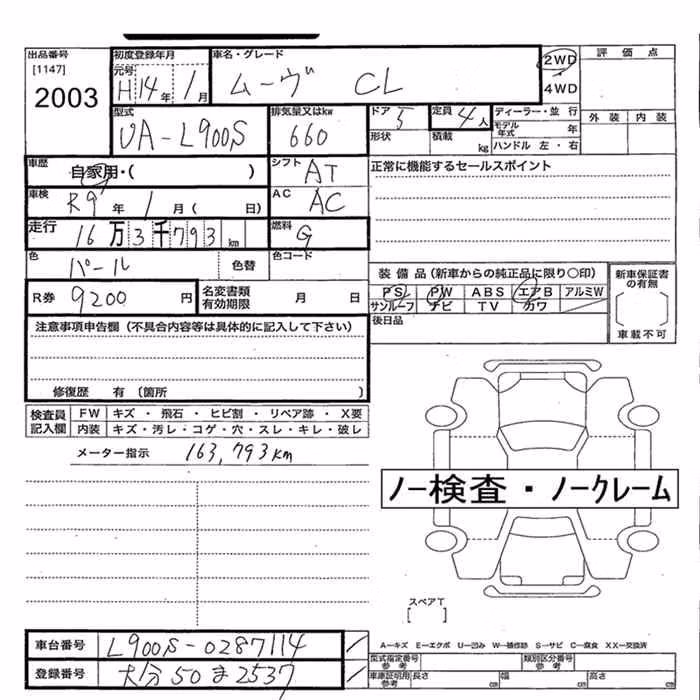 出品番号 初度登録年月 車名・グレード 2WD 評価点
[1147] 元号
2003 H 14年 1月 ムーヴ CL 4WD
型式 排気量又はkw ドア 定員 ディーラー・並行 外装 内装
UA-L900S 660 5 4人 モデル年式 年
形状 積載 kg ハンドル 左・右
車歴 自家用・( ) シフト AT 正常に機能するセールスポイント
車検 R9年 1月( 日) AC AC
走行 16万3千793km 燃料 G
色 パール 色替 色コード
装備品(新車からの純正品に限り○印) 新車保証書の有無
R券 9200円 名変書類有効期限 月 日 PS PW ABS エアB アルミW
サンルーフ ナビ TV カワ
注意事項申告欄(不具合内容等は具体的に記入して下さい) 後日品 車載不可
修復歴 有〔箇所 〕
検査員記入欄 FW キズ・飛石・ヒビ割・リペア跡・X要
内装 キズ・汚レ・コゲ・穴・スレ・キレ・破レ
メーター指示 163,793km
ノー検査・ノークレーム
スペアT
[ ]
車台番号 L900S-0287114
A=キズ E=エクボ U=凹み W=補修跡 S=サビ C=腐食 XX=交換済
型式指定番号参考 類別区分番号参考
登録番号 大分50ま2537
車庫証明用参考 長さ cm 幅 cm 高さ cm